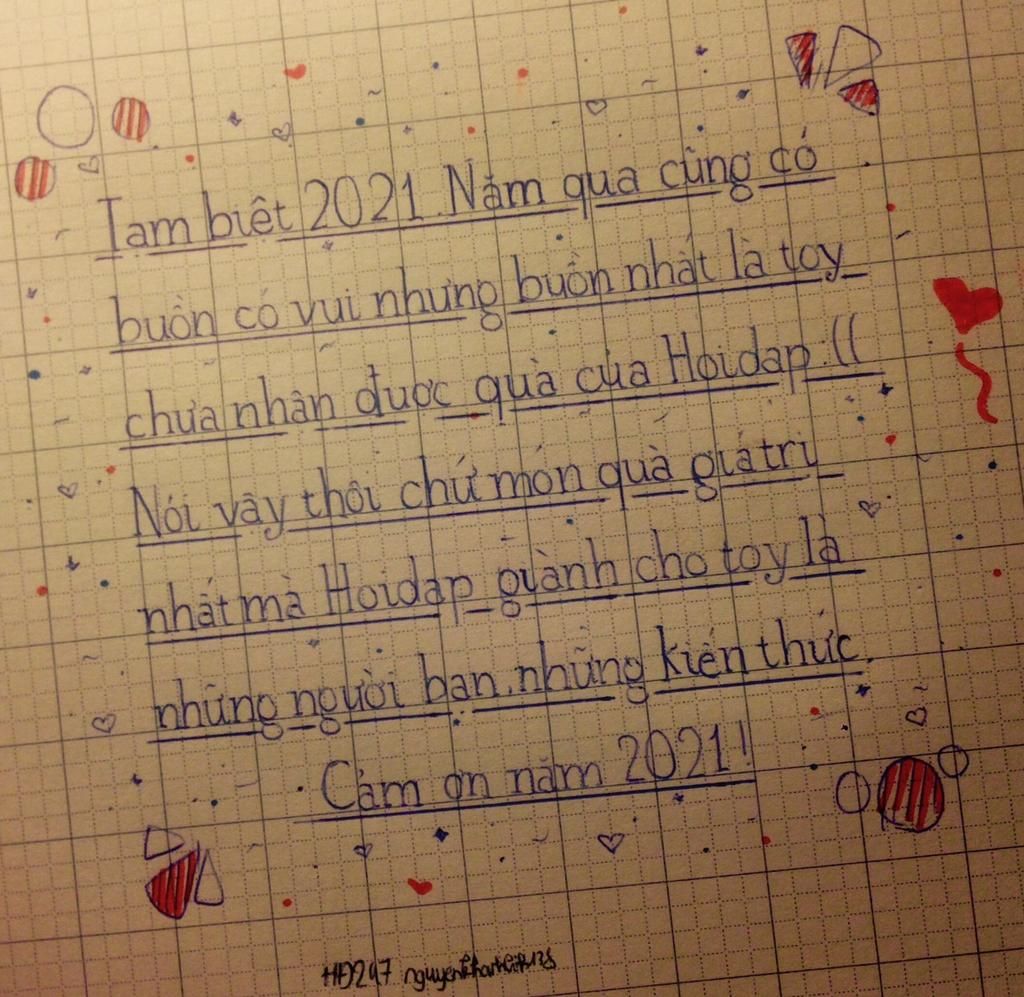 Tạm biệt 2021. Năm qua cũng có
buồn có vui nhưng buồn nhất là toy
chưa nhận được quà của Hoidap :((
Nói vậy thôi chứ món quà giá trị
nhất mà Hoidap giành cho toy là
những người bạn, những kiến thức.
Cảm ơn năm 2021!
HĐ247